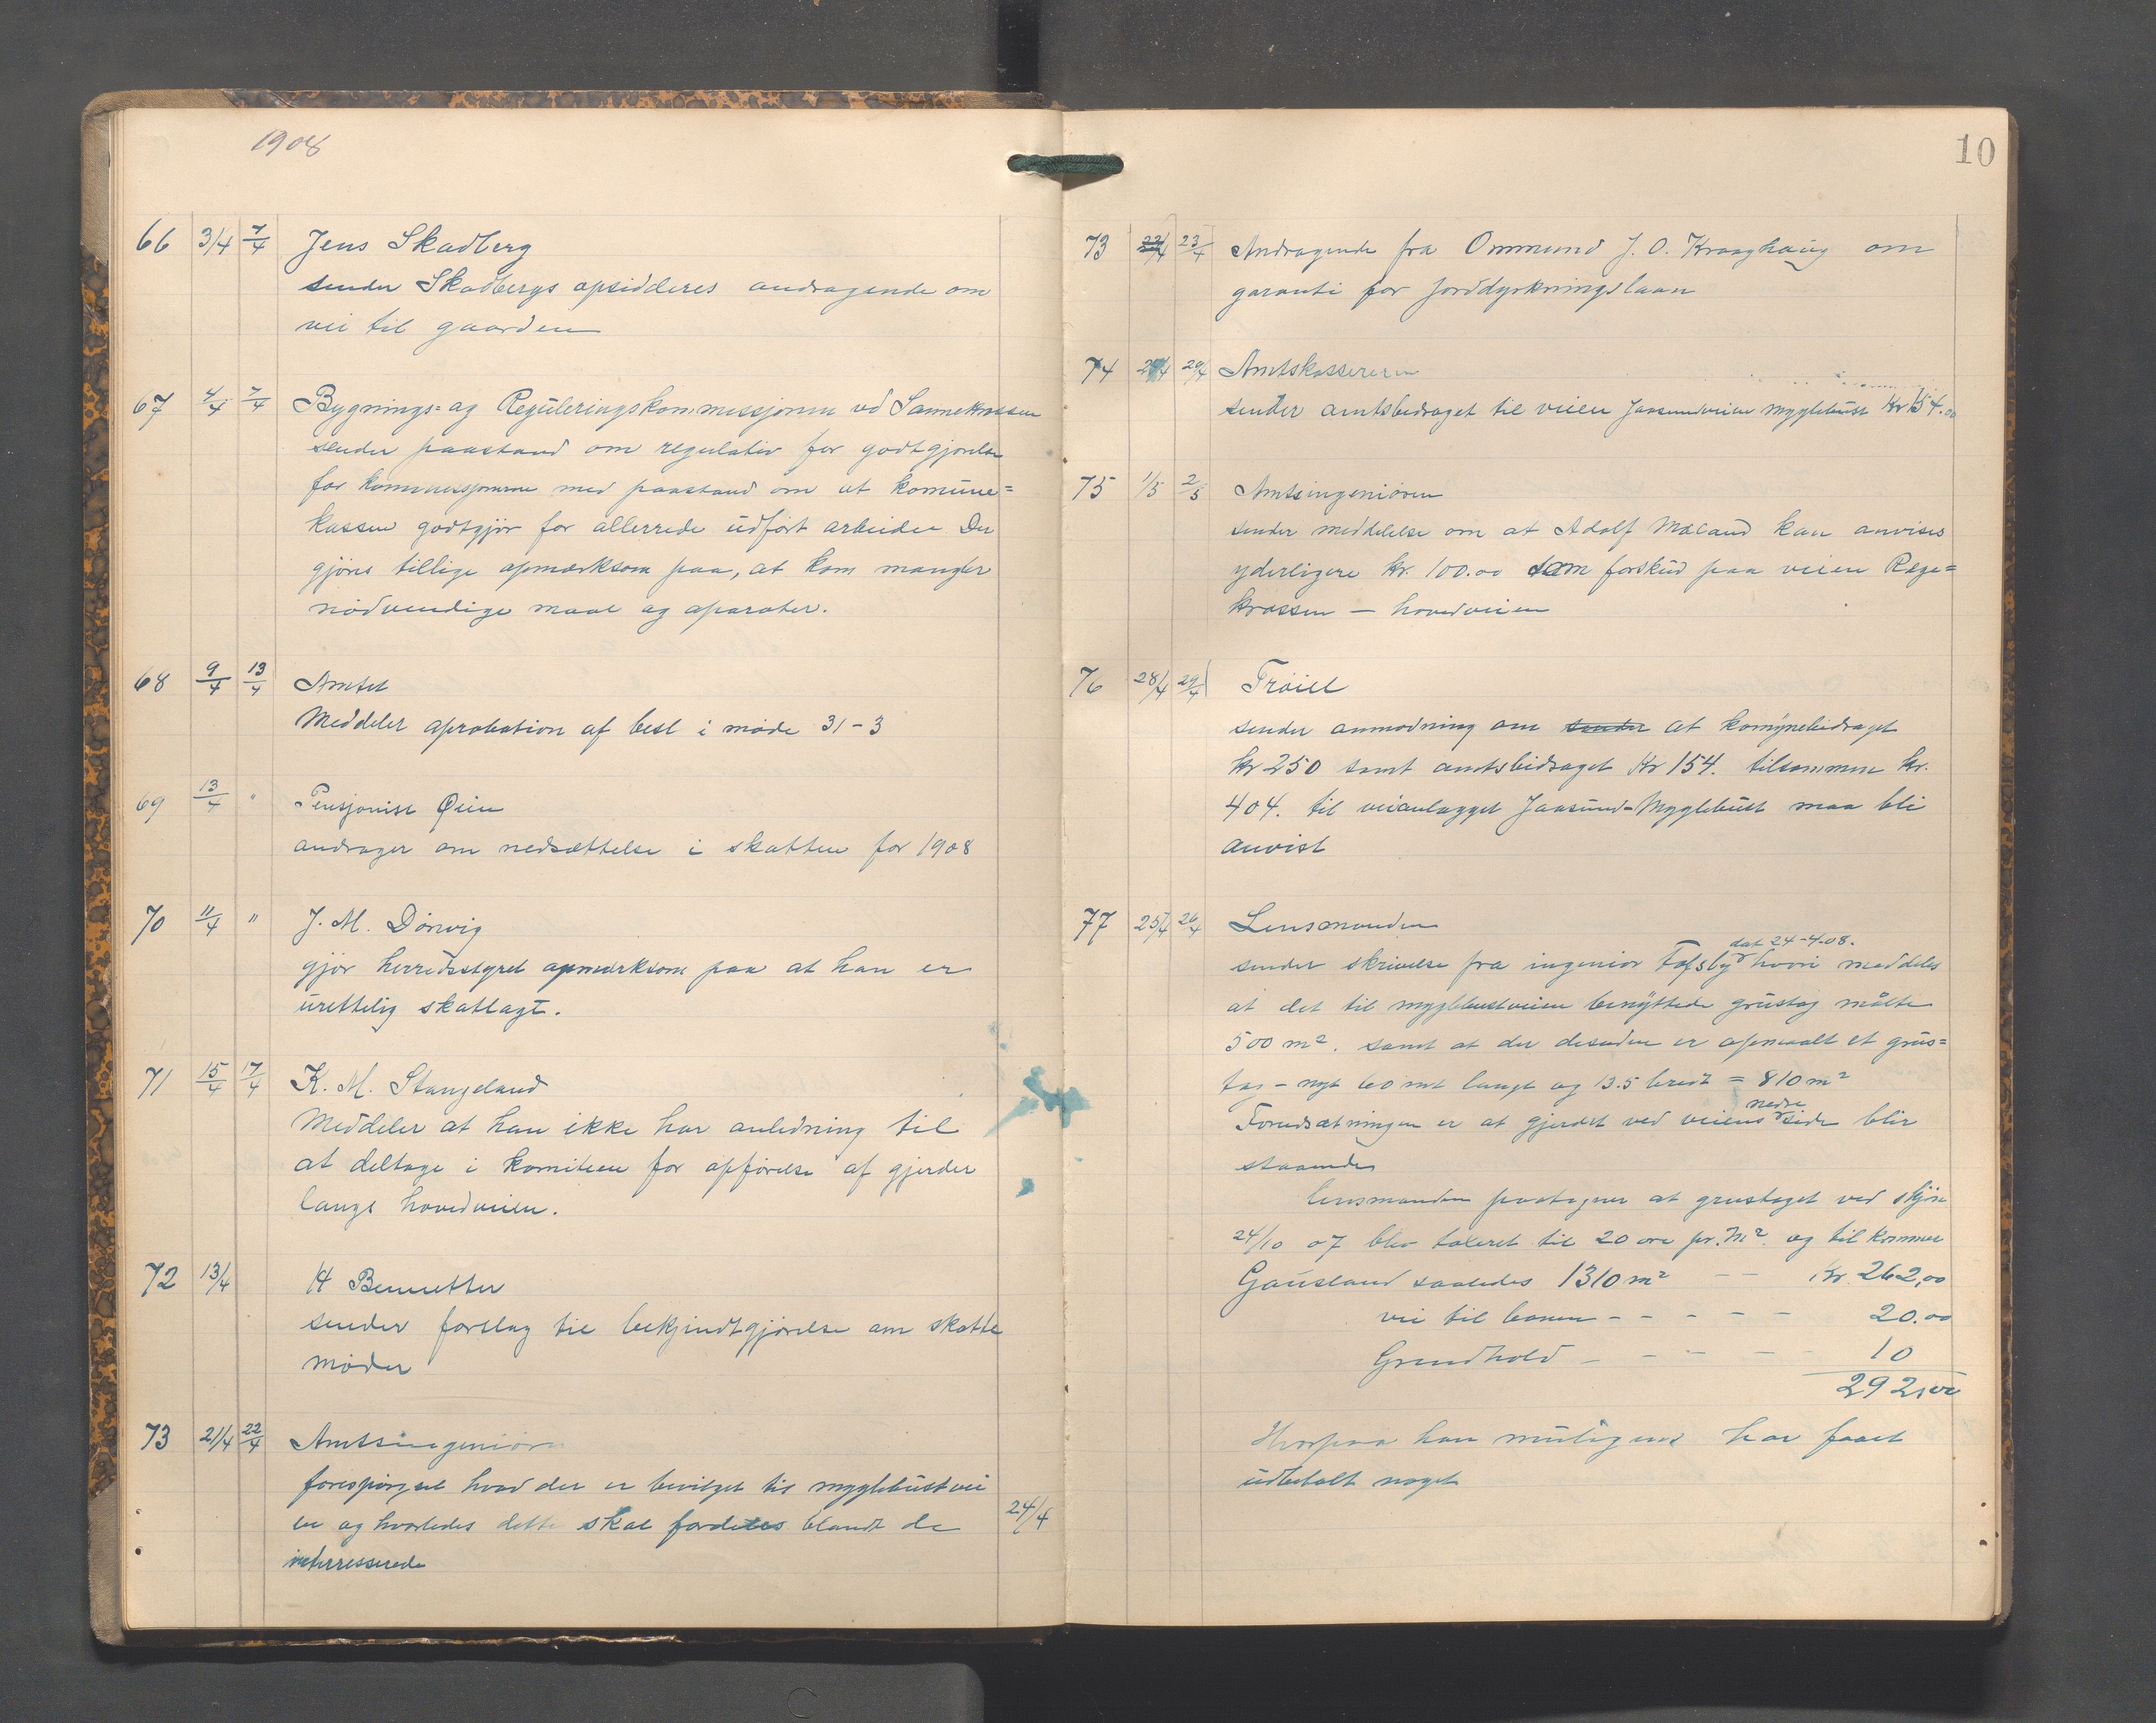 1908
66 3/4 7/4 Jens Skadberg
sender Skadbergs opsidderes andragende om
vei til gaarden
67 4/4 7/4 Bygnings= og Reguleringskommissjonen vd Sømmekrossen
sender paastand om regulativ for godtgjørelse
for kommissjonerne med paastand om at komüne=
kassen godtgjør for allerrede üdført arbeide Der
gjøres tillige opmerksom paa, at kom mangler
nødvendige maal og aparater.
68 9/4 13/4 Amtet
Meddeler aprobation af besl i møde 31-3
69 13/4 " Pensjonist Øien
andrager om nedsættelse i skatten for 1908
70 11/4 " J. M. Dørvig
gjør herredsstyret opmerksom paa at han er
ürettelig skatlagt.
71 15/4 17/4 K. M. Stangeland
Meddeler at han ikke har anledning til
at deltage i komiteen for opførelse af gjerder
langs hovedveien.
72 13/4 H Bennetter
sender forslag til bekjendtgjørelse om skatte
møder
73 21/4 22/4 Amtsingeniøren
forespørgsel hvad der er bevilget til myglebüstvei
en og hvorledes dette skal fordeles blandt de 24/4
interresserede
10
73 22/4 23/4 Andragende fra Ommund J. O. Kraaghaüg om
garanti for jorddyrkningslaan
74 29/4 Amtskassereren
sender amtsbidraget til veien Jaasundveien myglebüst Kr 154.00
75 1/5 2/5 Amtsingeniøren
sender meddelelse om at Adolf Mæland kan anvises
yderligere kr. 100.00 som forskud paa veien Rege=
krossen — hovedveien
76 28/4 29/4 Trøiel
sender anmodning om sender at komünebidraget
kr 250 samt amtsbidraget Kr 154. tilsammen kr.
404. til veianlægget Jaasünd-Myglebüst maa bli
anvist
77 25/4 26/4 Lensmanden
dat 24-4-08.
sender skrivelse fra ingeniør hvori meddeles
at det til myglebustveien benyttede grüstag målte
500 m². samt at der desuden er opmaalt et grüs=
tag - nyt 60 mt langt og 13.5 bredt = 810 m²
nedre
Forudsætningen er at gjerdet ved veiens side blir
staaende
lensmanden paategner at grustaget ved skjøn
24/10 07 blev taxeret til 20 øre pr. M². og tilkommer
Gaüsland saaledes 1310 m² — — Kr. 262,00
vei til banen - - - - - 20.00
Grindhold - - - - - 10
292,00
Hvorpaa han müligens har faaet
üdbetalt noget